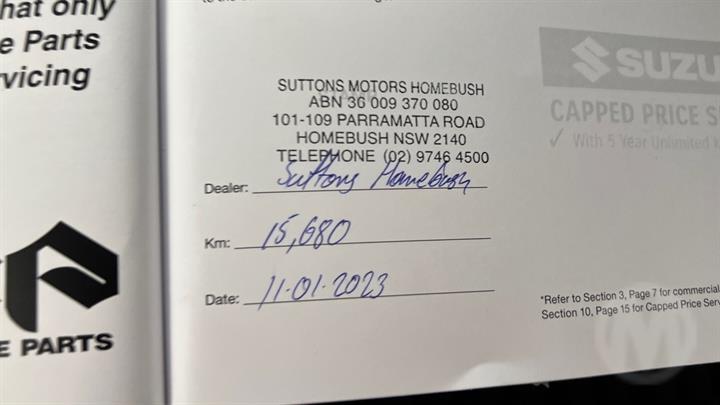 hat only
e Parts
vicing
E PARTS
SUTTONS MOTORS HOMEBUSH
ABN 36 009 370 080
101-109 PARRAMATTA ROAD
HOMEBUSH NSW 2140
TELEPHONE (02) 9746 4500
Dealer: Suttons Homebush
Km: 15,680
Date: 11.01.2023
SUZU
CAPPED PRICE S
✓ With 5 Year Unlimited
*Refer to Section 3, Page 7 for commercial
Section 10, Page 15 for Capped Price Serv